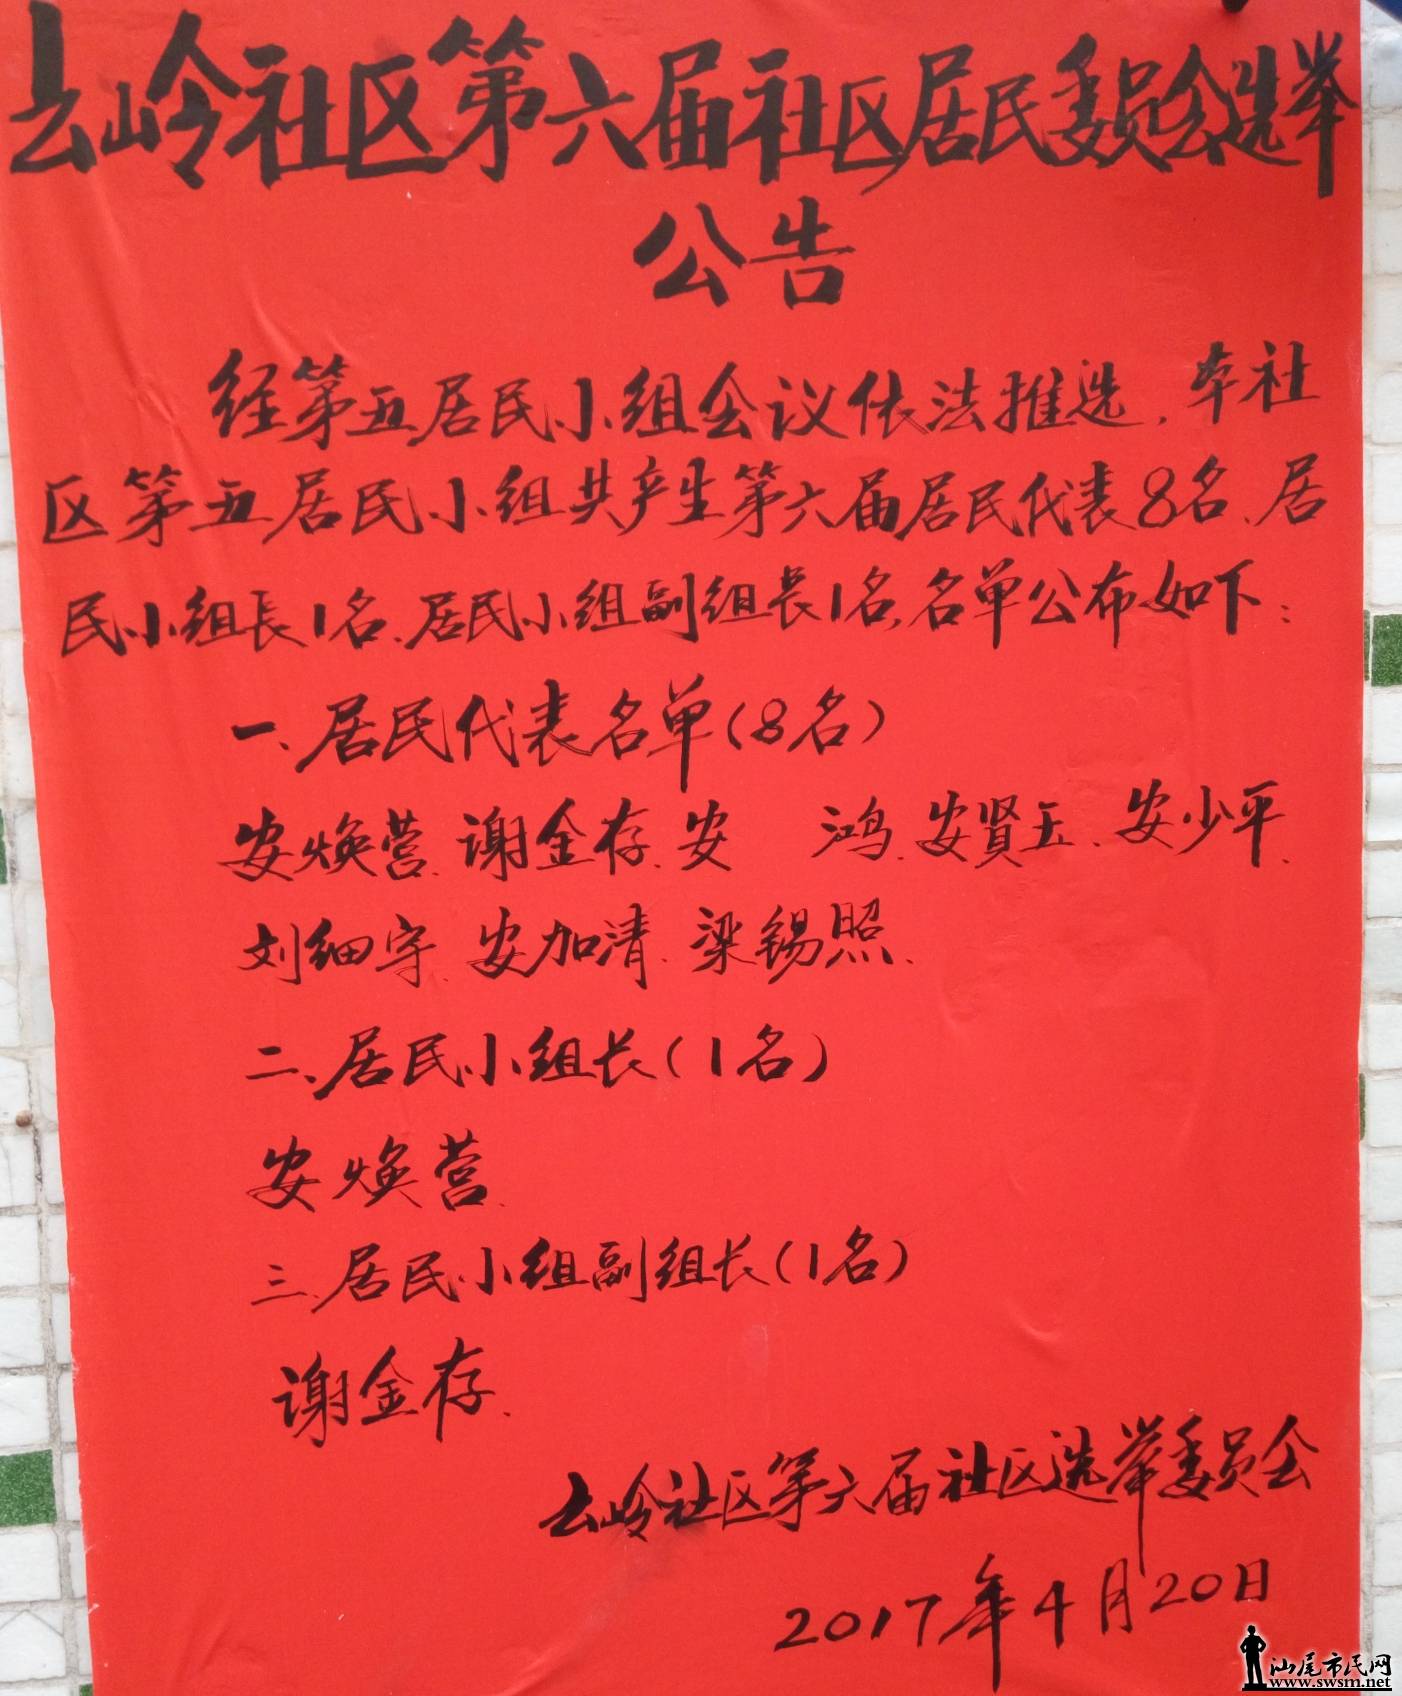 云岭社区第六届社区居民委员会选举
公告
经第五居民小组会议依法推选，本社
区第五居民小组共产生第六届居民代表8名、居
民小组长1名、居民小组副组长1名，名单公布如下：
一、居民代表名单(8名)
安焕营、谢金存、安 鸿、安贤玉、安少平、
刘细宇、安加清、梁锡照、
二、居民小组长(1名)
安焕营、
三、居民小组副组长(1名)
谢金存、
云岭社区第六届社区选举委员会
2017年4月20日
汕尾市民网
www.swsm.net